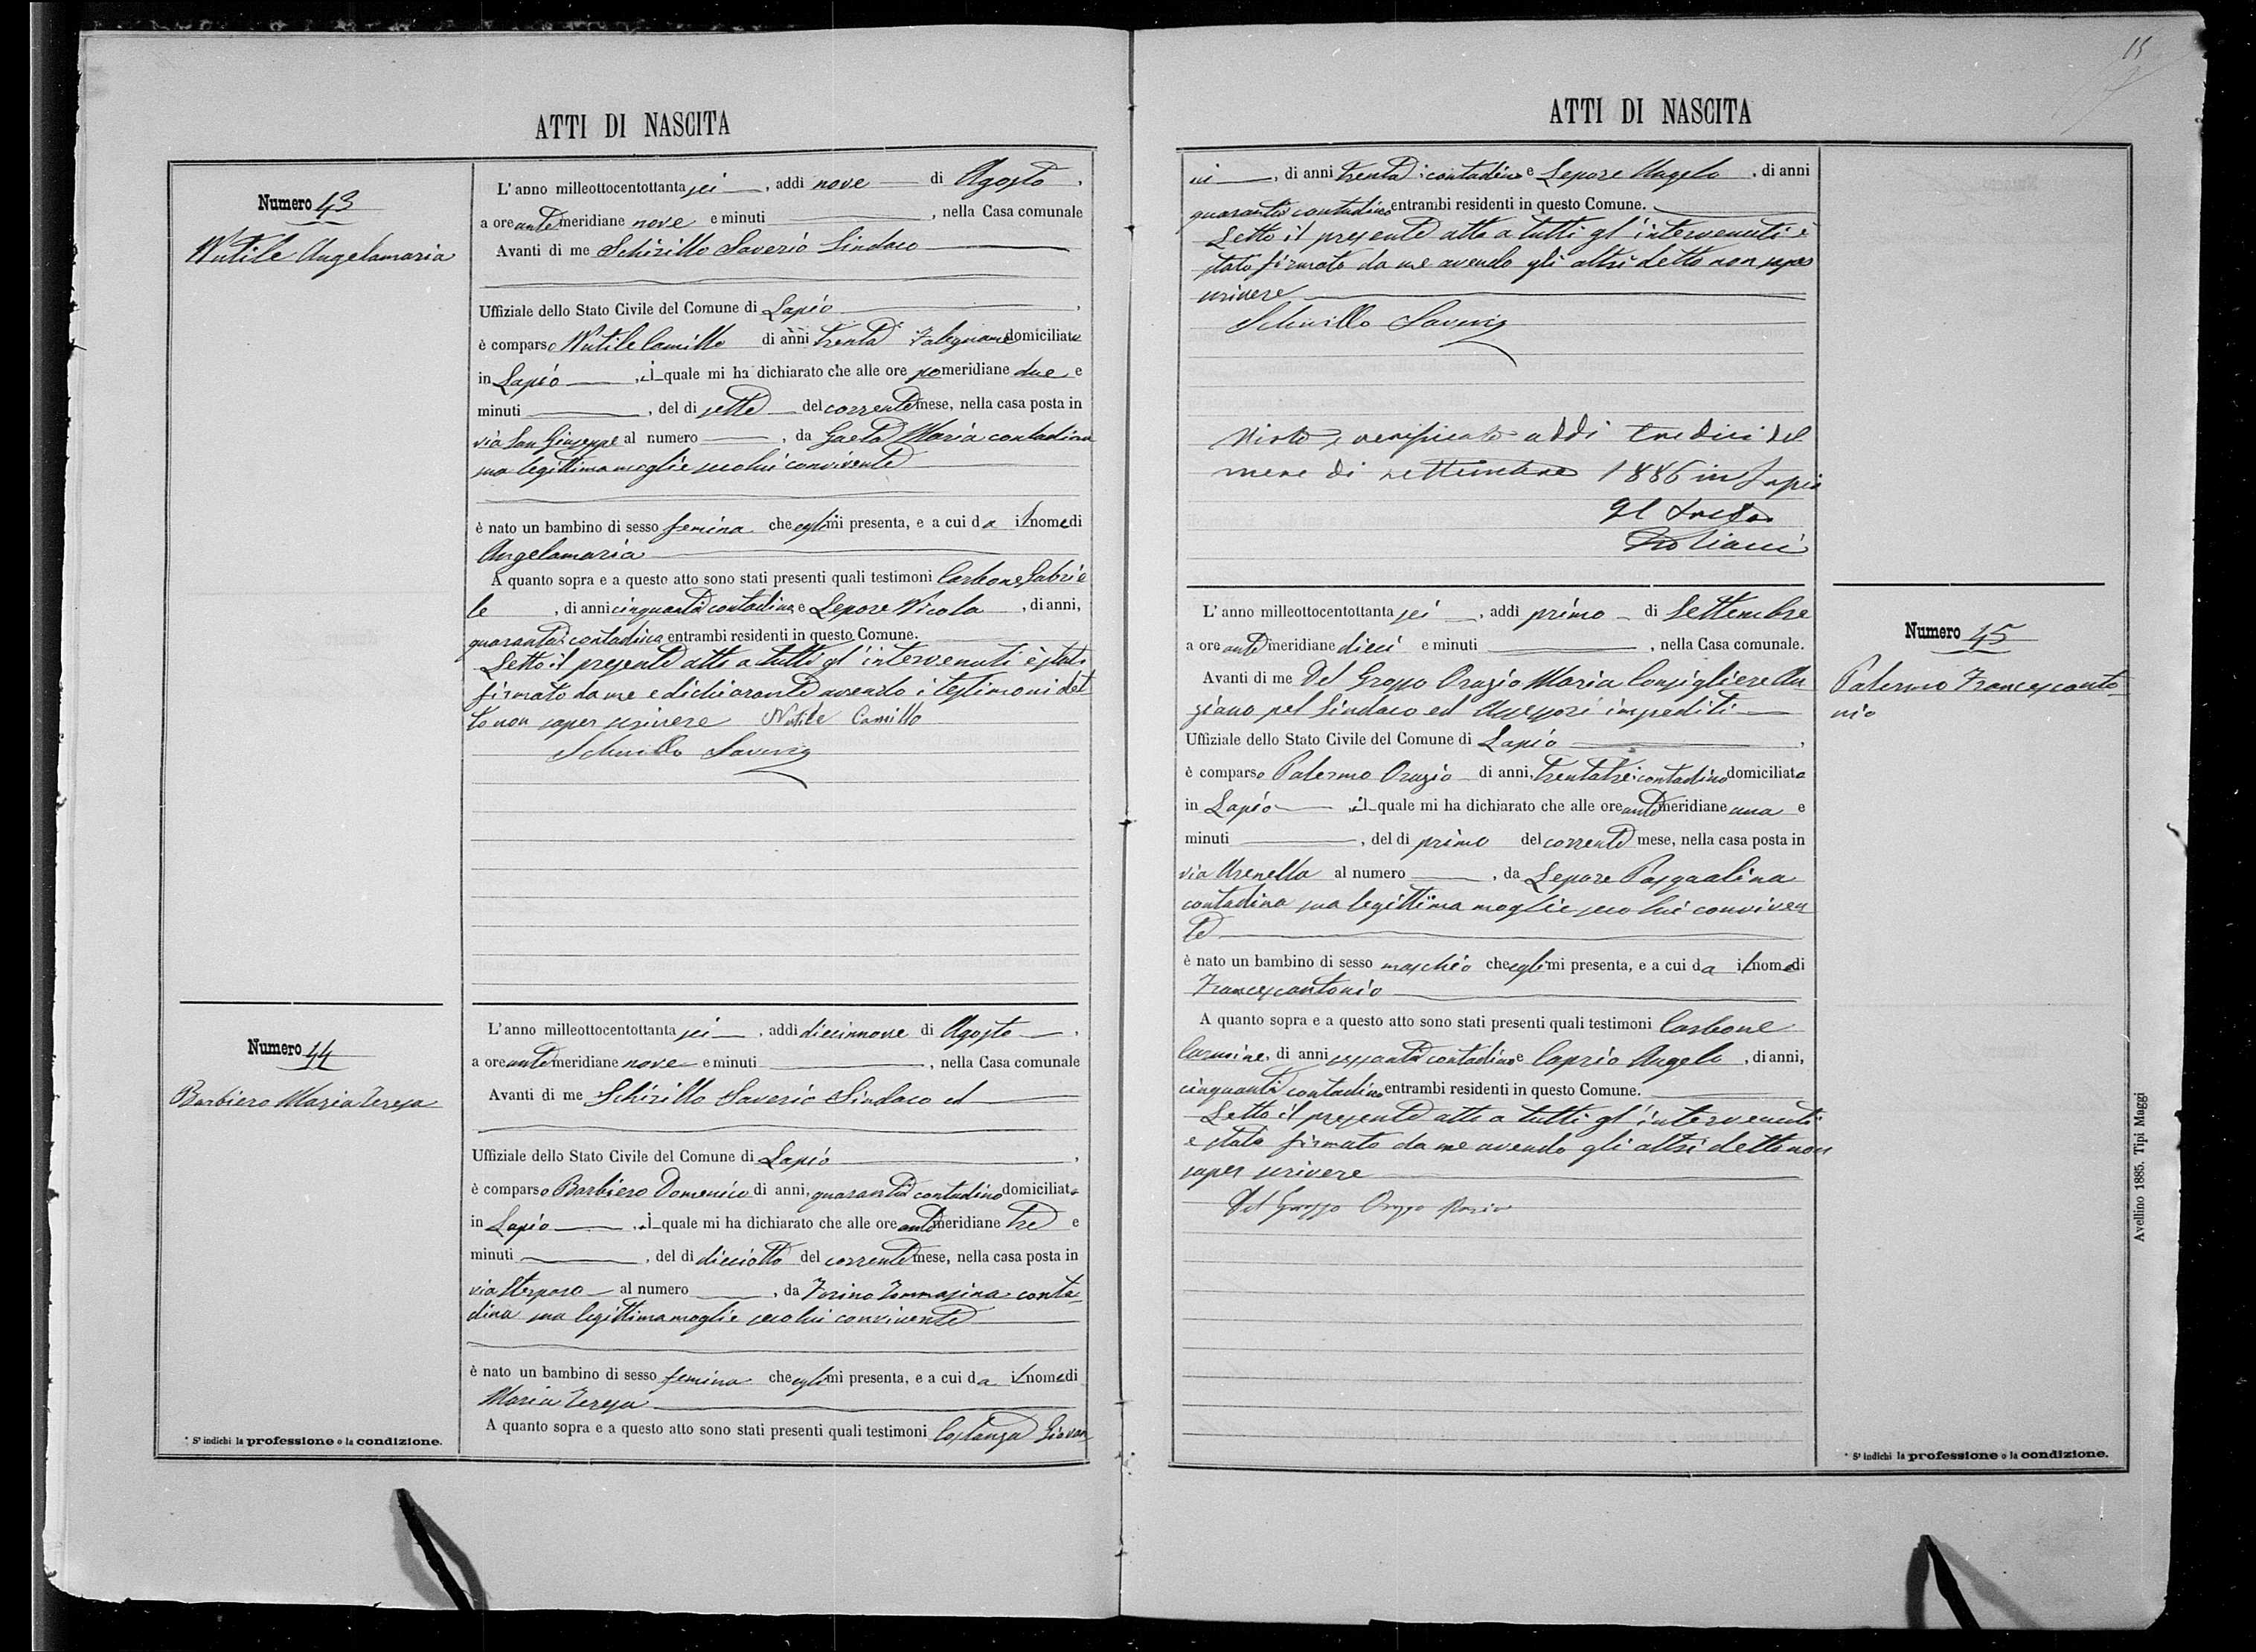 ATTI DI NASCITA
Numero 43
Nutile Angelamaria
L'anno milleottocentottanta sei, addì nove di Agosto,
a ore antemeridiane nove e minuti, nella Casa comunale
Avanti di me Schirillo Saverio Sindaco
Uffiziale dello Stato Civile del Comune di Lapio,
è comparso Nutile Camillo di anni trenta falegname domiciliato
in Lapio, il quale mi ha dichiarato che alle ore pomeridiane due e
minuti, del dì sette del corrente mese, nella casa posta in
via San Giuseppe al numero, da Gaeta Maria contadina
sua legittima moglie seco lui convivente
è nato un bambino di sesso femina che egli mi presenta, e a cui da il nome di
Angelamaria
A quanto sopra e a questo atto sono stati presenti quali testimoni Carbone Gabrie
le, di anni cinquanta contadino, e Lepore Nicola, di anni,
quaranta contadino entrambi residenti in questo Comune.
Letto il presente atto a tutti gl'intervenuti è stato
firmato da me e dichiarante avendo i testimoni det
to non saper scrivere Nutile Camillo
Schirillo Saverio
Numero 44
Barbiero Maria Teresa
L'anno milleottocentottanta sei, addì diecinnove di Agosto,
a ore antemeridiane nove e minuti, nella Casa comunale
Avanti di me Schirillo Saverio Sindaco ed
Uffiziale dello Stato Civile del Comune di Lapio,
è comparso Barbiero Domenico di anni, quaranta contadino domiciliato
in Lapio, il quale mi ha dichiarato che alle ore antimeridiane tre e
minuti, del dì dieciotto del corrente mese, nella casa posta in
via Sterparo al numero, da Forino Tommasina conta
dina sua legittima moglie seco lui convivente
è nato un bambino di sesso femina che egli mi presenta, e a cui da il nome di
Maria Teresa
A quanto sopra e a questo atto sono stati presenti quali testimoni Costanza Giovan
* S'indichi la professione o la condizione.
15
ATTI DI NASCITA
ni, di anni trenta contadino e Lepore Angelo, di anni
quaranta contadino entrambi residenti in questo Comune.
Letto il presente atto a tutti gl'intervenuti è
stato firmato da me avendo gli altri detto non saper
scrivere
Schirillo Saverio
Visto e verificato addì tredici del
mese di settembre 1886 in Lapio
Il Pretore
L'anno milleottocentottanta sei, addì primo di Settembre
a ore antemeridiane dieci e minuti, nella Casa comunale.
Avanti di me Del Grosso Orazio Maria Consigliere An
ziano pel Sindaco ed Assessori impediti
Uffiziale dello Stato Civile del Comune di Lapio,
è comparso Palermo Orazio di anni, trentatre contadino domiciliato
in Lapio il quale mi ha dichiarato che alle ore antemeridiane una e
minuti, del dì primo del corrente mese, nella casa posta in
via Arenella al numero, da Lepore Pasqualina
contadina sua legittima moglie seco lui conviven
te
è nato un bambino di sesso maschio che egli mi presenta, e a cui da il nome di
Francescantonio
A quanto sopra e a questo atto sono stati presenti quali testimoni Carbone
Carmine, di anni sessanta contadino e Caprio Angelo, di anni,
cinquanta contadino entrambi residenti in questo Comune.
Letto il presente atto a tutti gl'intervenuti
e stato firmato da me avendo gli altri detto non
saper scrivere
Del Grosso Orazio Maria
Numero 45
Palermo Francescanto
nio
* S'indichi la professione o la condizione.
Avellino 1885. Tipi Maggi